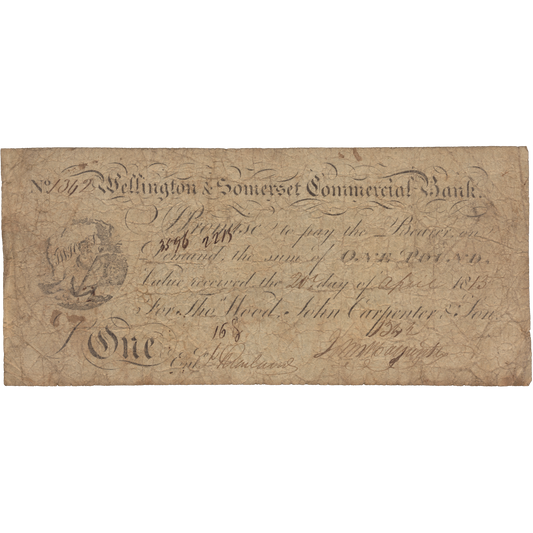 No 1342 Wellington & Somerset Commercial Bank.
I Promise to pay the Bearer on
3596 2215
Demand the sum of ONE POUND.
Value received the 20 day of April 1815
For Thos Wood, John Carpenter & Son
1342
168
One
Entd